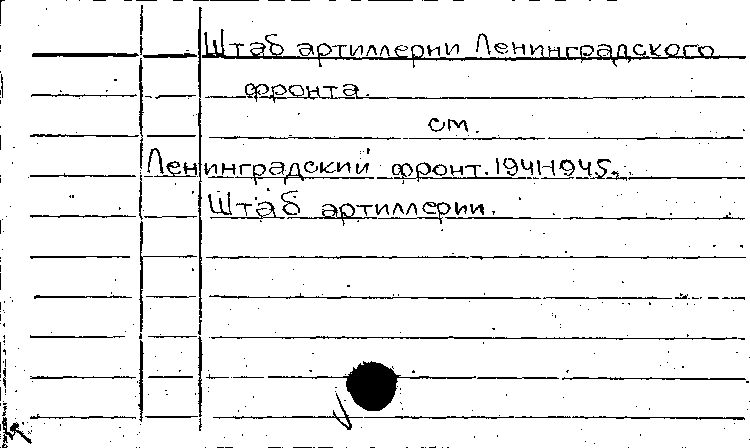 Штаб артиллерии Ленинградского
фронта.
см.
Ленинградский фронт. 1941-1945.
Штаб артиллерии.